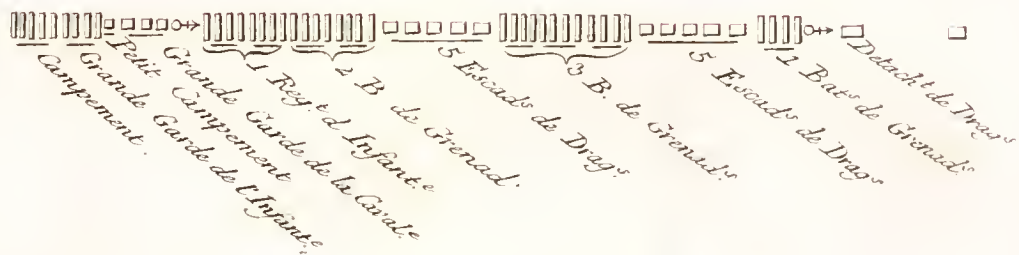 Campement.
Grande Garde de l'Infant.e
Petit Campement
Grande Garde de la Caval.e
1 Reg.t d Infant.e
2 B de Grenad.s
5 Escad.s de Drag.s
3 B. de Grenad.s
5 Escad.s de Drag.s
1 Bat.s de Grenad.s
Detach.t de Drag.s